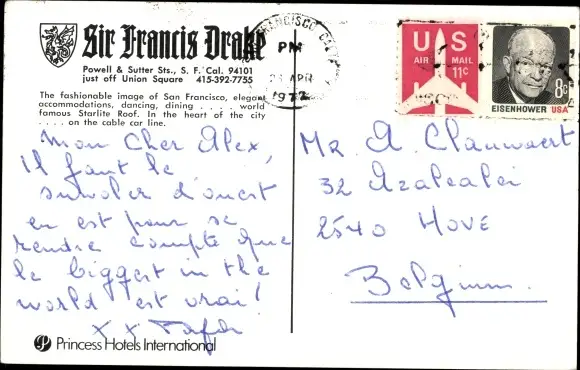 Sir Francis Drake
Powell & Sutter Sts., S. F. Cal. 94101
just off Union Square 415-392-7755
The fashionable image of San Francisco, elegant
accommodations, dancing, dining . . . . . world
famous Starlite Roof. In the heart of the city
. . . . on the cable car line.
FRANCISCO, CA
PM
APR
1972
US
AIR MAIL
11c
8c
EISENHOWER USA
Mon Cher Alex,
Il faut le
survoler d'ouest
en est pour se
rendre compte que
le biggest in the
world est vrai!
x x
MR. A. Clauwaert
32 Azalealei
2540 HOVE
Belgium.
Princess Hotels International